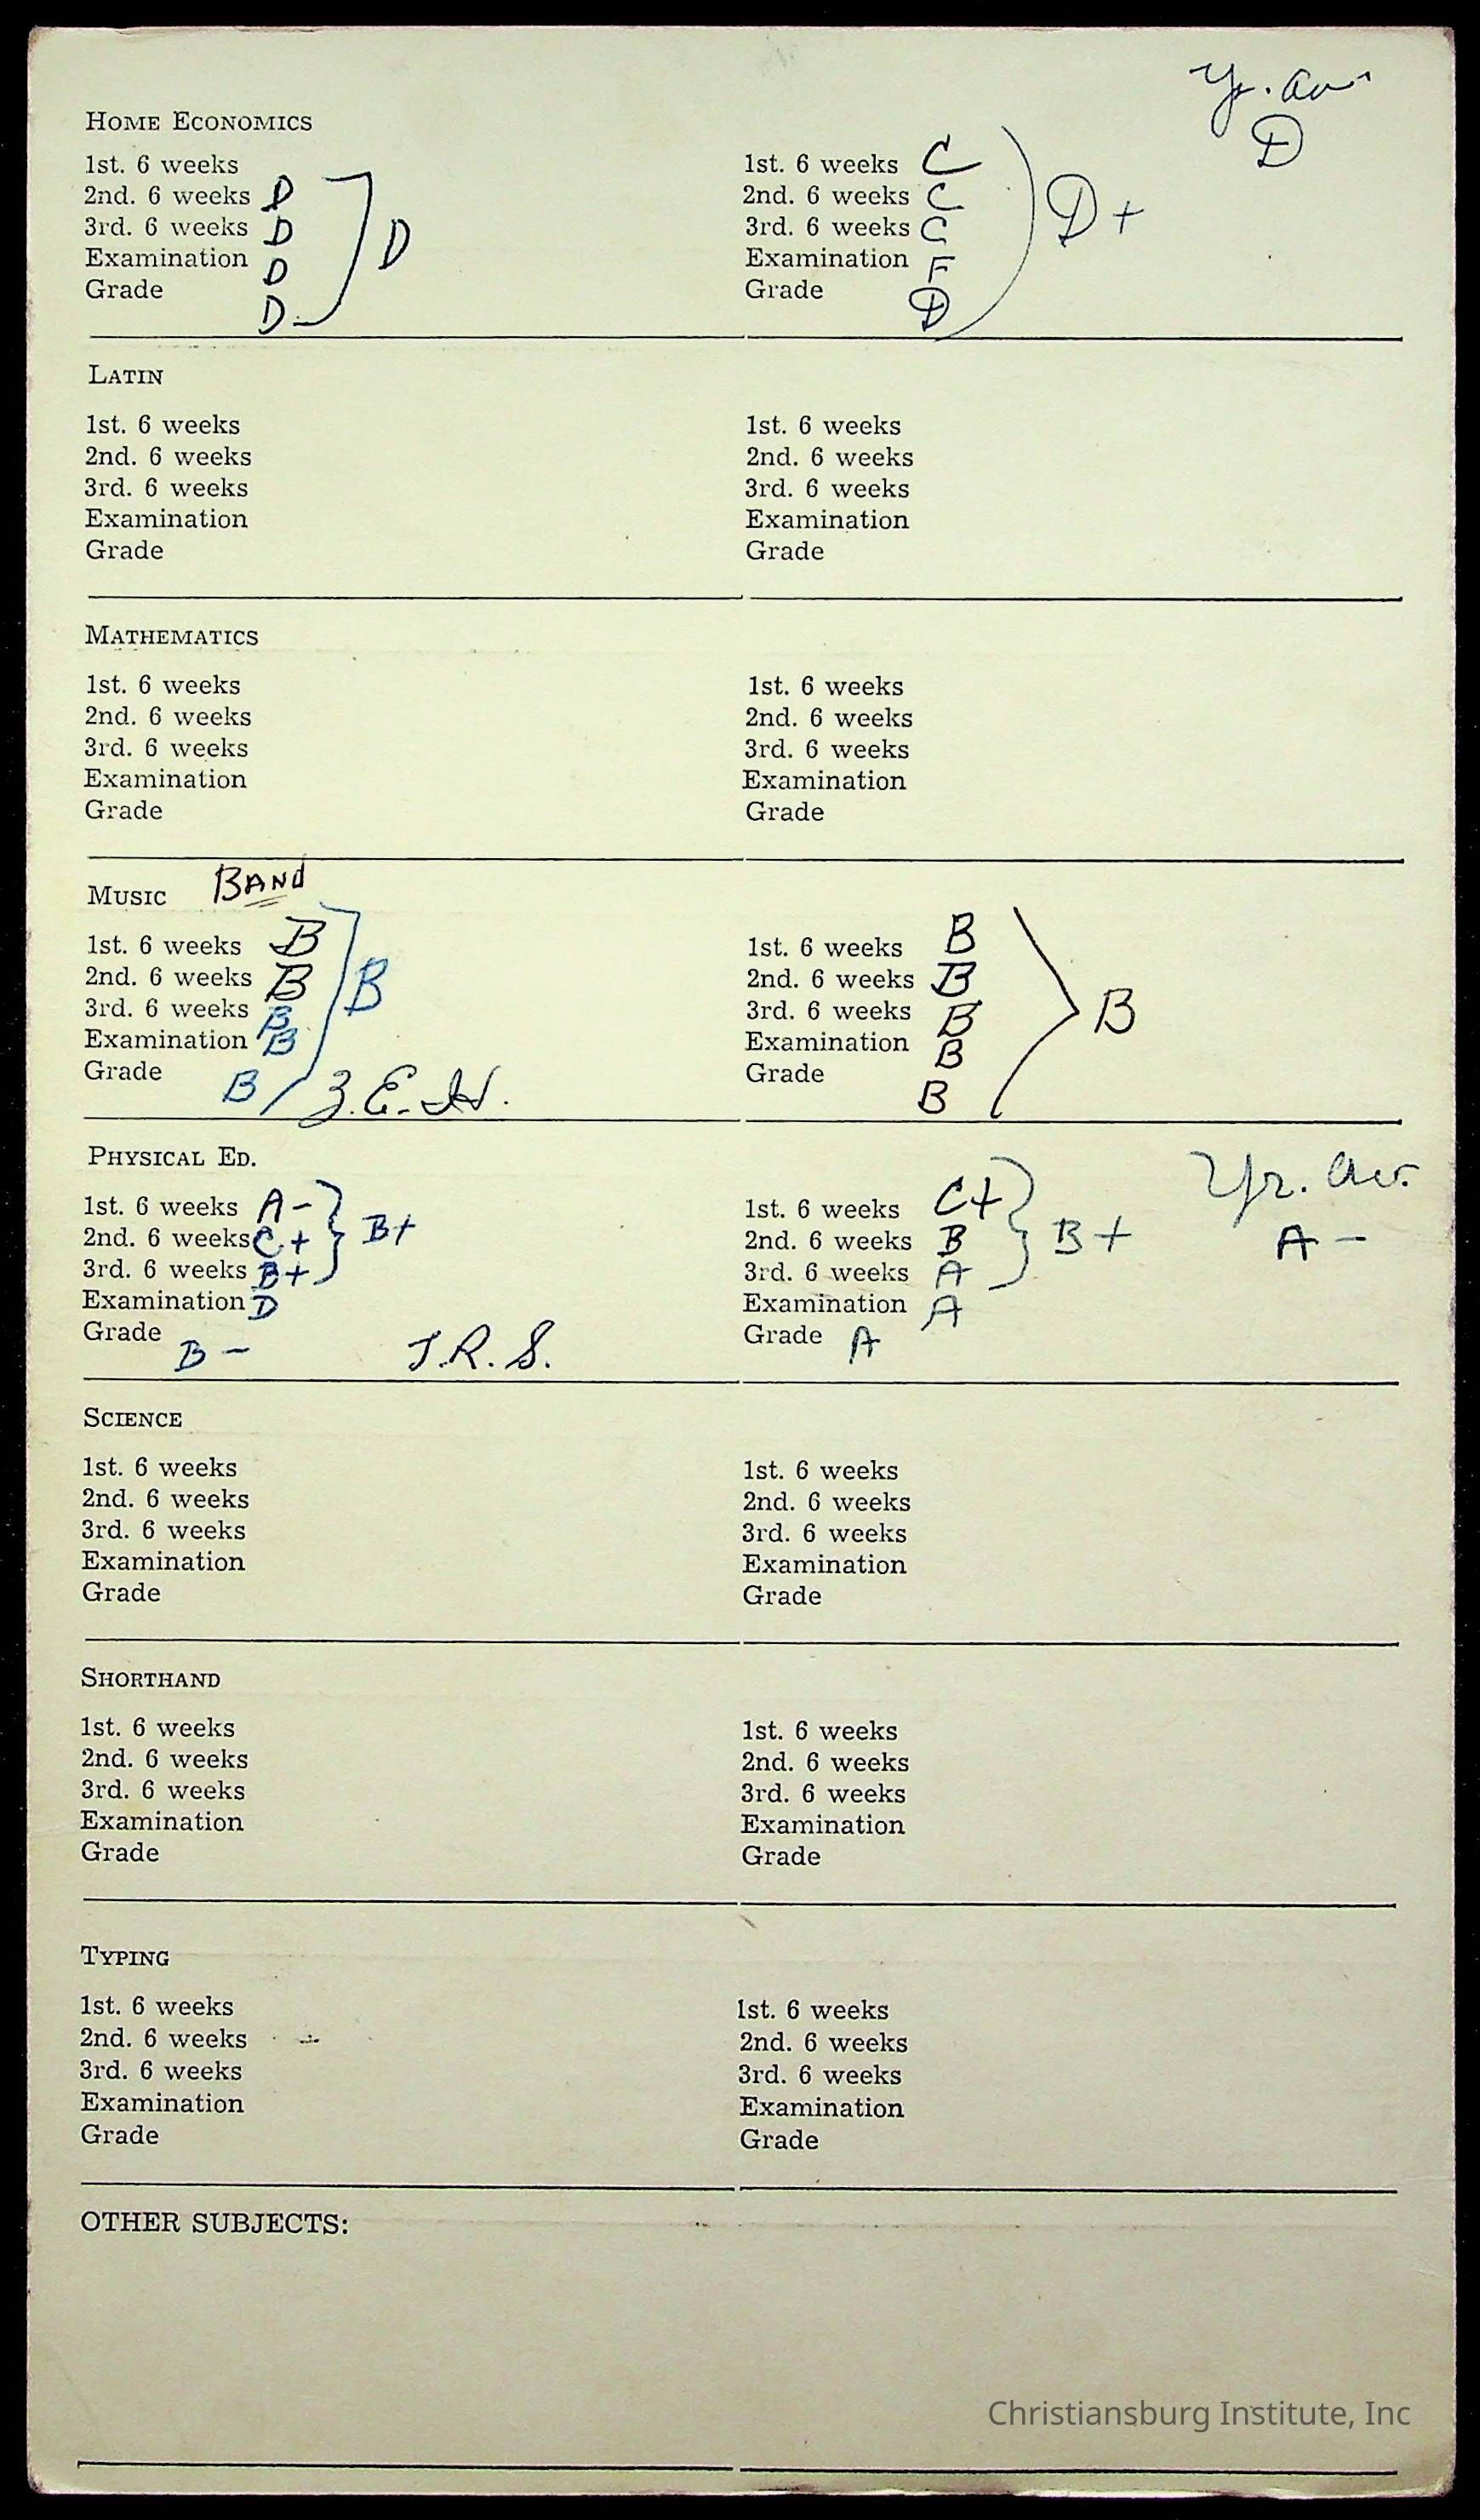 Yr. Av.
D
HOME ECONOMICS
1st. 6 weeks
2nd. 6 weeks D
3rd. 6 weeks D
Examination D
Grade D
D
1st. 6 weeks C
2nd. 6 weeks C
3rd. 6 weeks C
Examination F
Grade D
D+
LATIN
1st. 6 weeks
2nd. 6 weeks
3rd. 6 weeks
Examination
Grade
1st. 6 weeks
2nd. 6 weeks
3rd. 6 weeks
Examination
Grade
MATHEMATICS
1st. 6 weeks
2nd. 6 weeks
3rd. 6 weeks
Examination
Grade
1st. 6 weeks
2nd. 6 weeks
3rd. 6 weeks
Examination
Grade
MUSIC BAND
1st. 6 weeks B
2nd. 6 weeks B
3rd. 6 weeks B
Examination B
Grade B
B
Z.E.H.
1st. 6 weeks B
2nd. 6 weeks B
3rd. 6 weeks B
Examination B
Grade B
B
PHYSICAL ED.
1st. 6 weeks A-
2nd. 6 weeks C+
3rd. 6 weeks B+
Examination D
Grade B-
B+
J.R.S.
1st. 6 weeks C+
2nd. 6 weeks B
3rd. 6 weeks A
Examination A
Grade A
B+
Yr. Av.
A-
SCIENCE
1st. 6 weeks
2nd. 6 weeks
3rd. 6 weeks
Examination
Grade
1st. 6 weeks
2nd. 6 weeks
3rd. 6 weeks
Examination
Grade
SHORTHAND
1st. 6 weeks
2nd. 6 weeks
3rd. 6 weeks
Examination
Grade
1st. 6 weeks
2nd. 6 weeks
3rd. 6 weeks
Examination
Grade
TYPING
1st. 6 weeks
2nd. 6 weeks
3rd. 6 weeks
Examination
Grade
1st. 6 weeks
2nd. 6 weeks
3rd. 6 weeks
Examination
Grade
OTHER SUBJECTS:
Christiansburg Institute, Inc